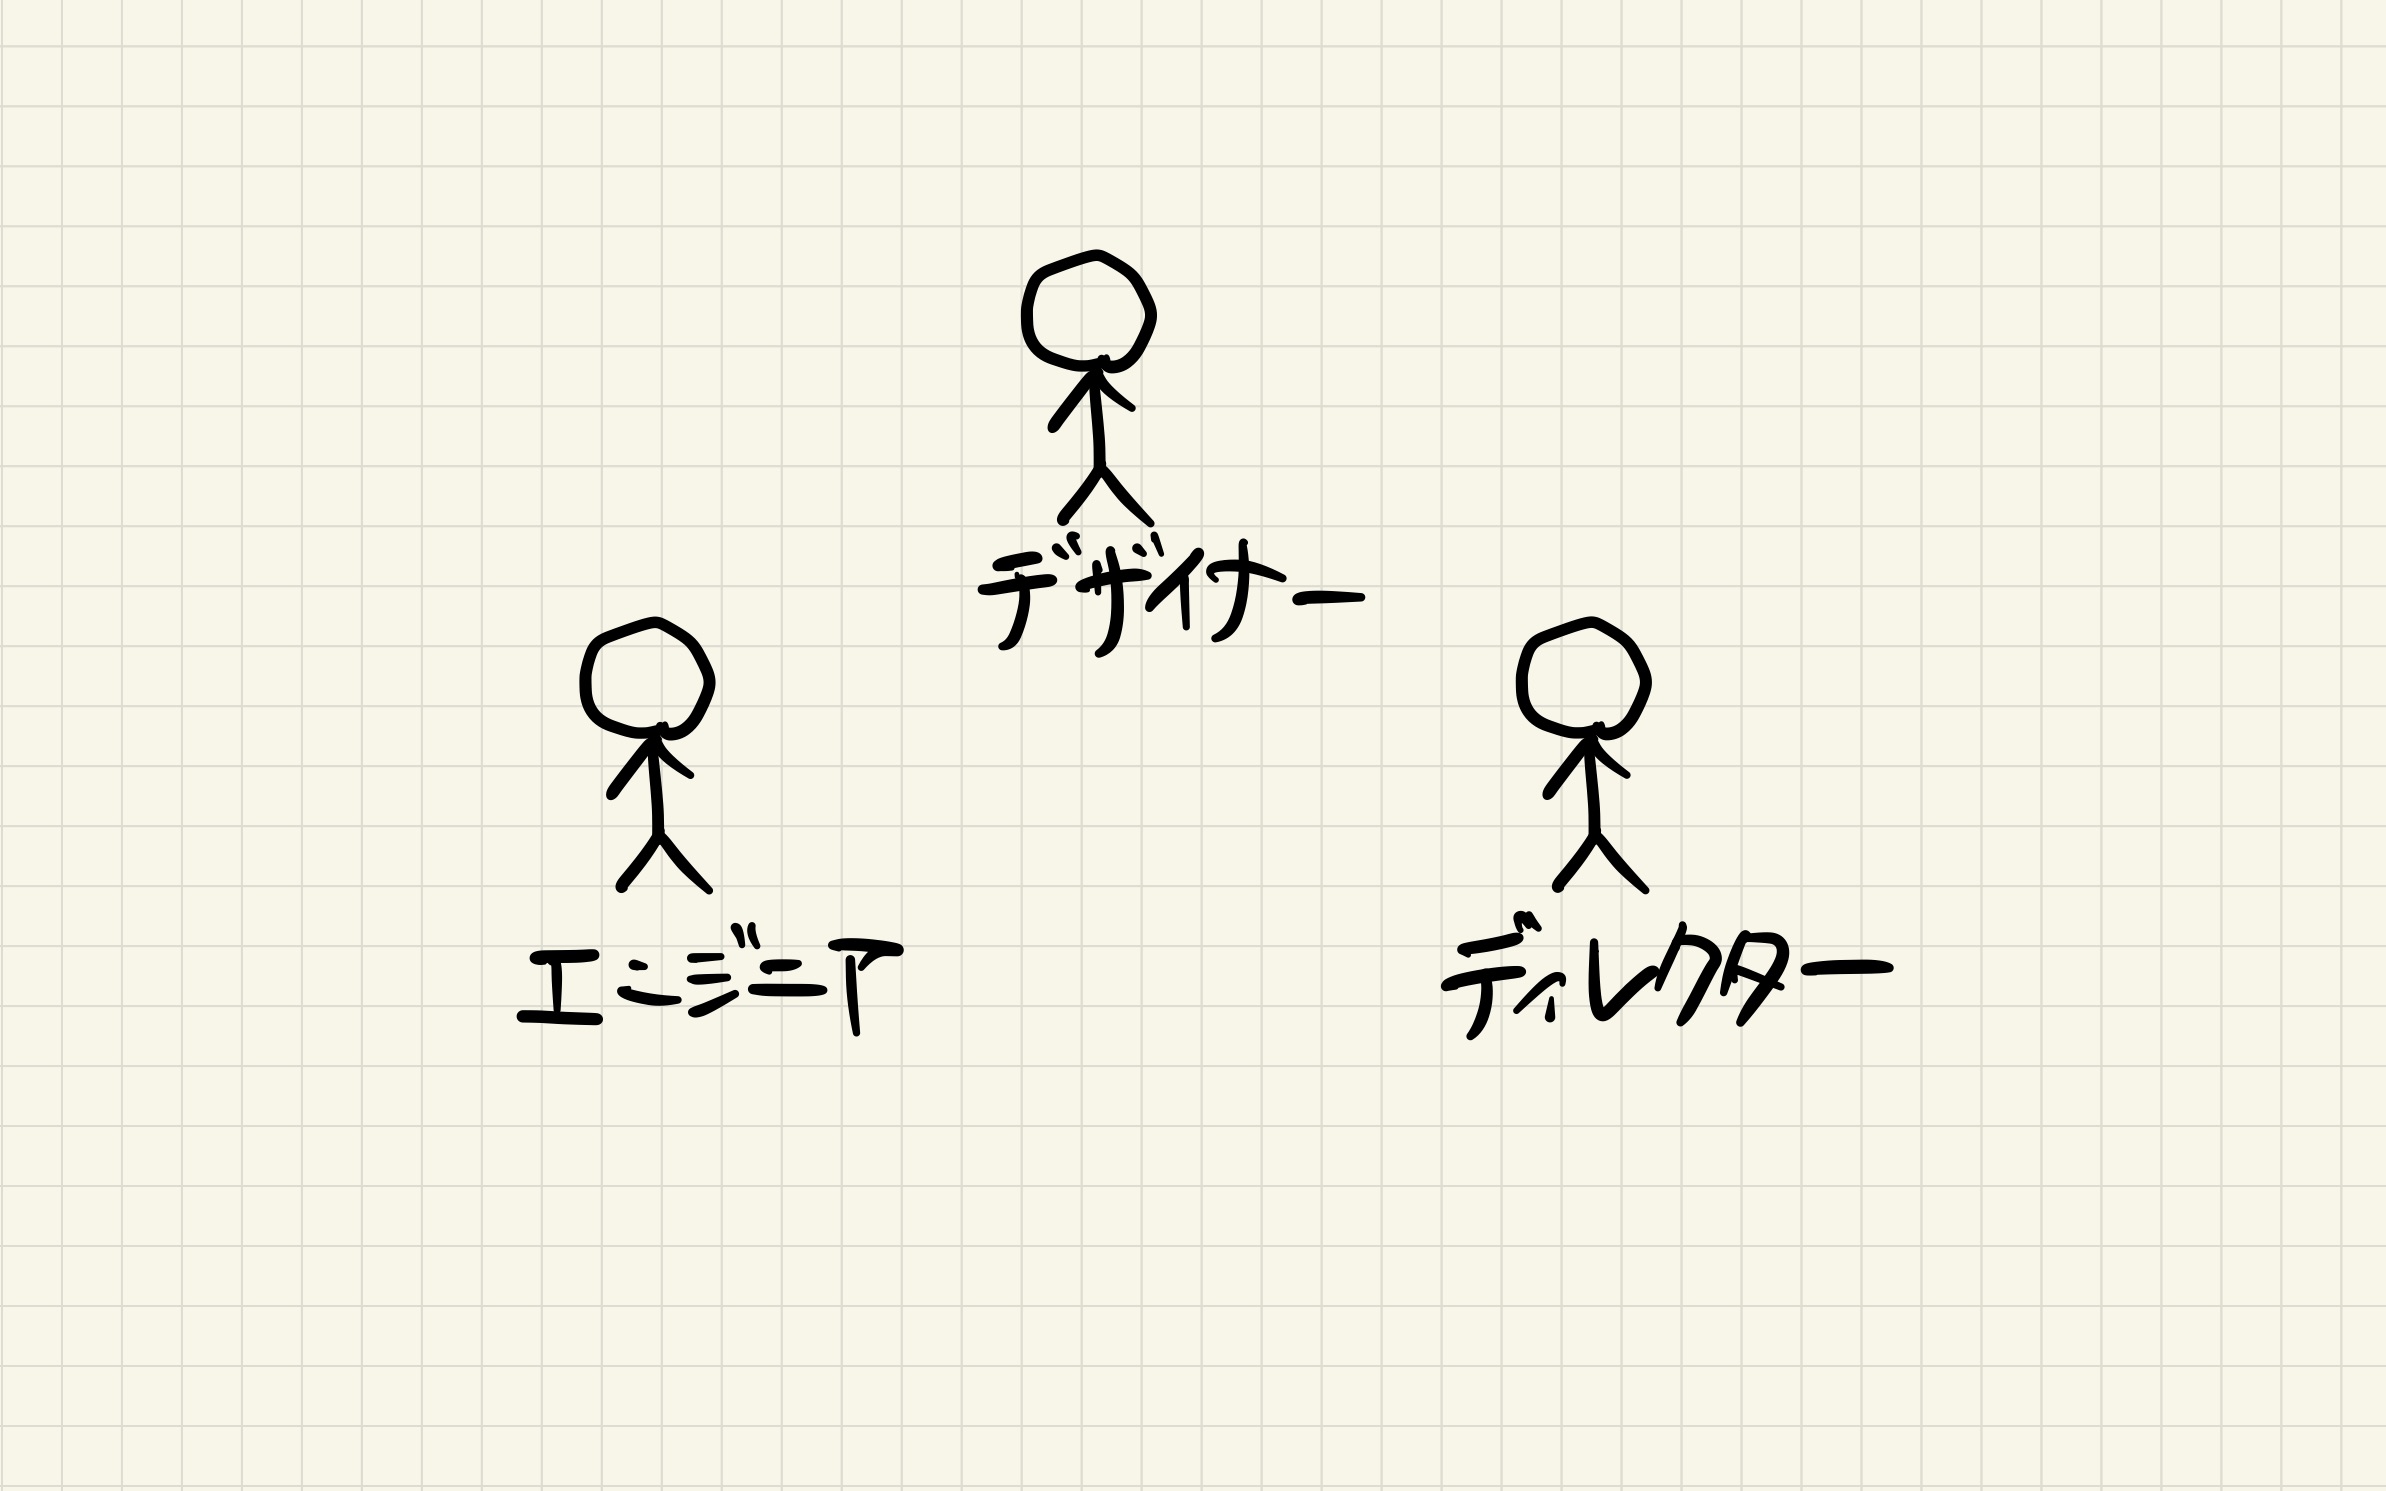 デザイナー
エンジニア
ディレクター